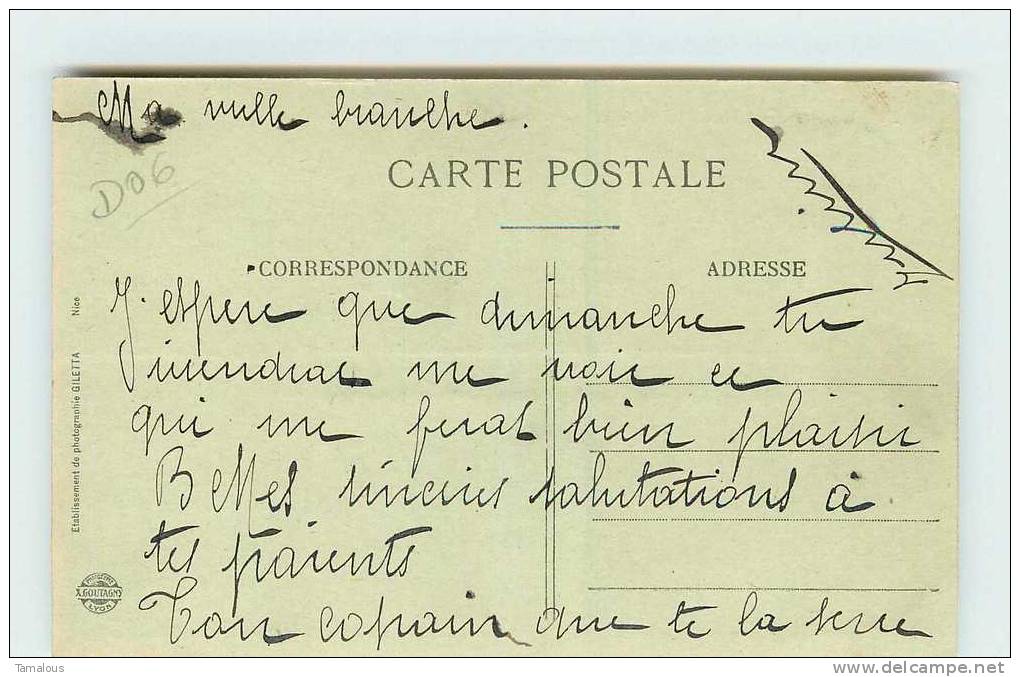 Ma vielle branche.
D06
CARTE POSTALE
CORRESPONDANCE
ADRESSE
J'espere que dimanche tu
viendrac me voir ce
qui me ferat bien plaisir
Besses sinceres salutations à
tes parents
Ton copain que te la serre
Etablissement de photographie GILETTA Nice
X.GOUTAGNY
LYON
Tamalous
www.delcampe.net